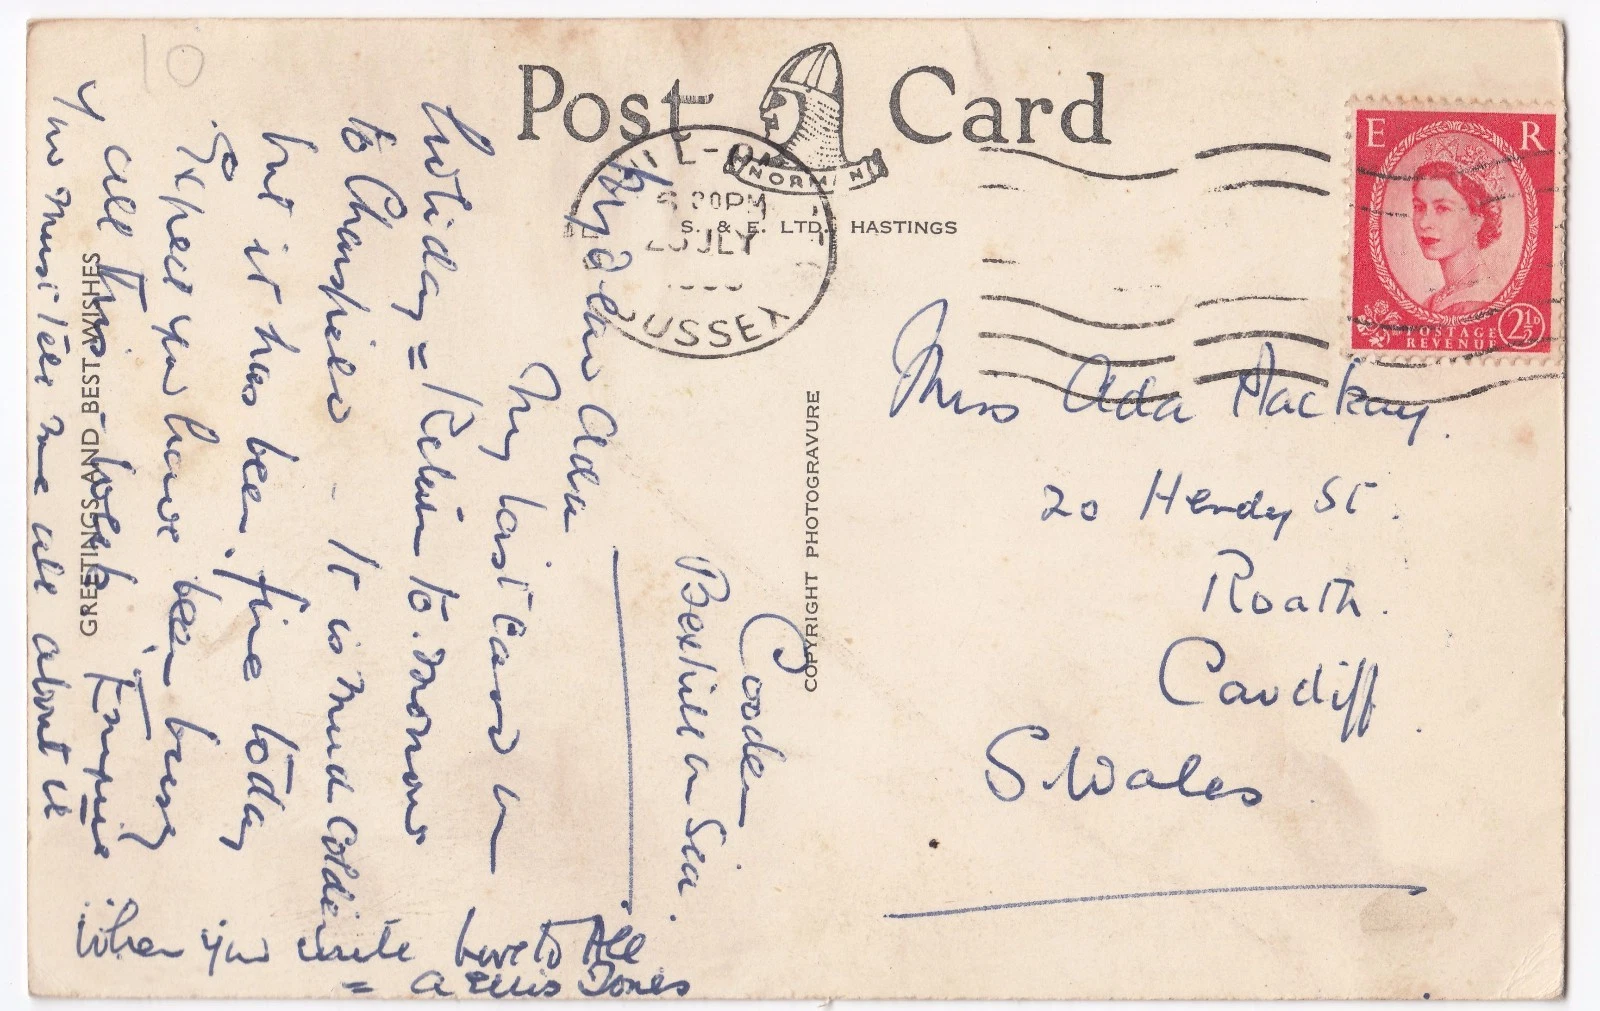 10
Post Card
NORMAN
S. & E. LTD., HASTINGS
30PM
JLY
SUSSEX
E R
POSTAGE
REVENUE
2½D
GREETINGS AND BEST WISHES
COPYRIGHT PHOTOGRAVURE
Cooden
Bexhill on Sea.
My dear Ada
My last card on
holiday = Return to.morrow
to Chenies - It is much colder
but it has been fine today
Expect you have been busy
all this week Empire
You must tell me all about it
When you write Love to All
= A Ellis Jones
Miss Ada Mackay.
20 Hendy St.
Roath.
Cardiff
S. Wales